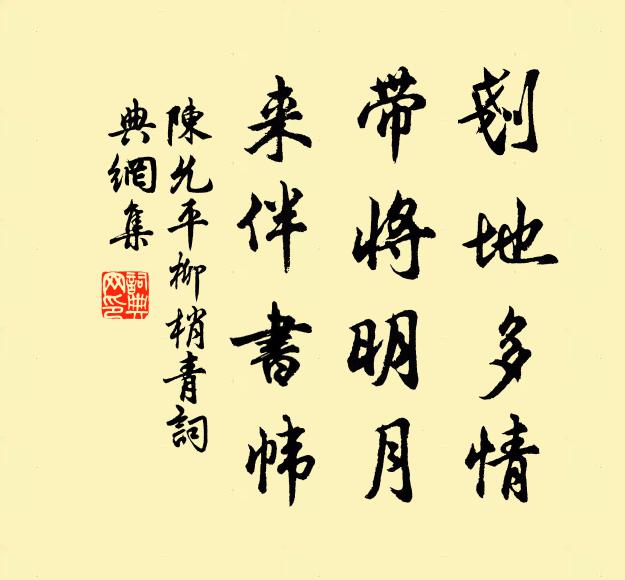 刬地多情
带将明月
来伴書帏
陳允平柳梢青詞
典網集
詞典
网印